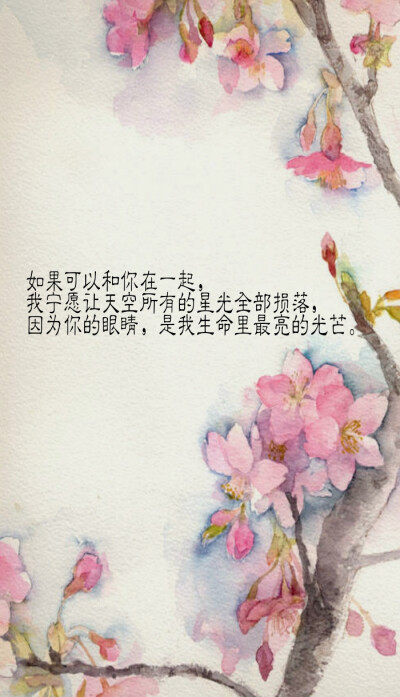 如果可以和你在一起，
我宁愿让天空所有的星光全部损落，
因为你的眼睛，是我生命里最亮的光芒。